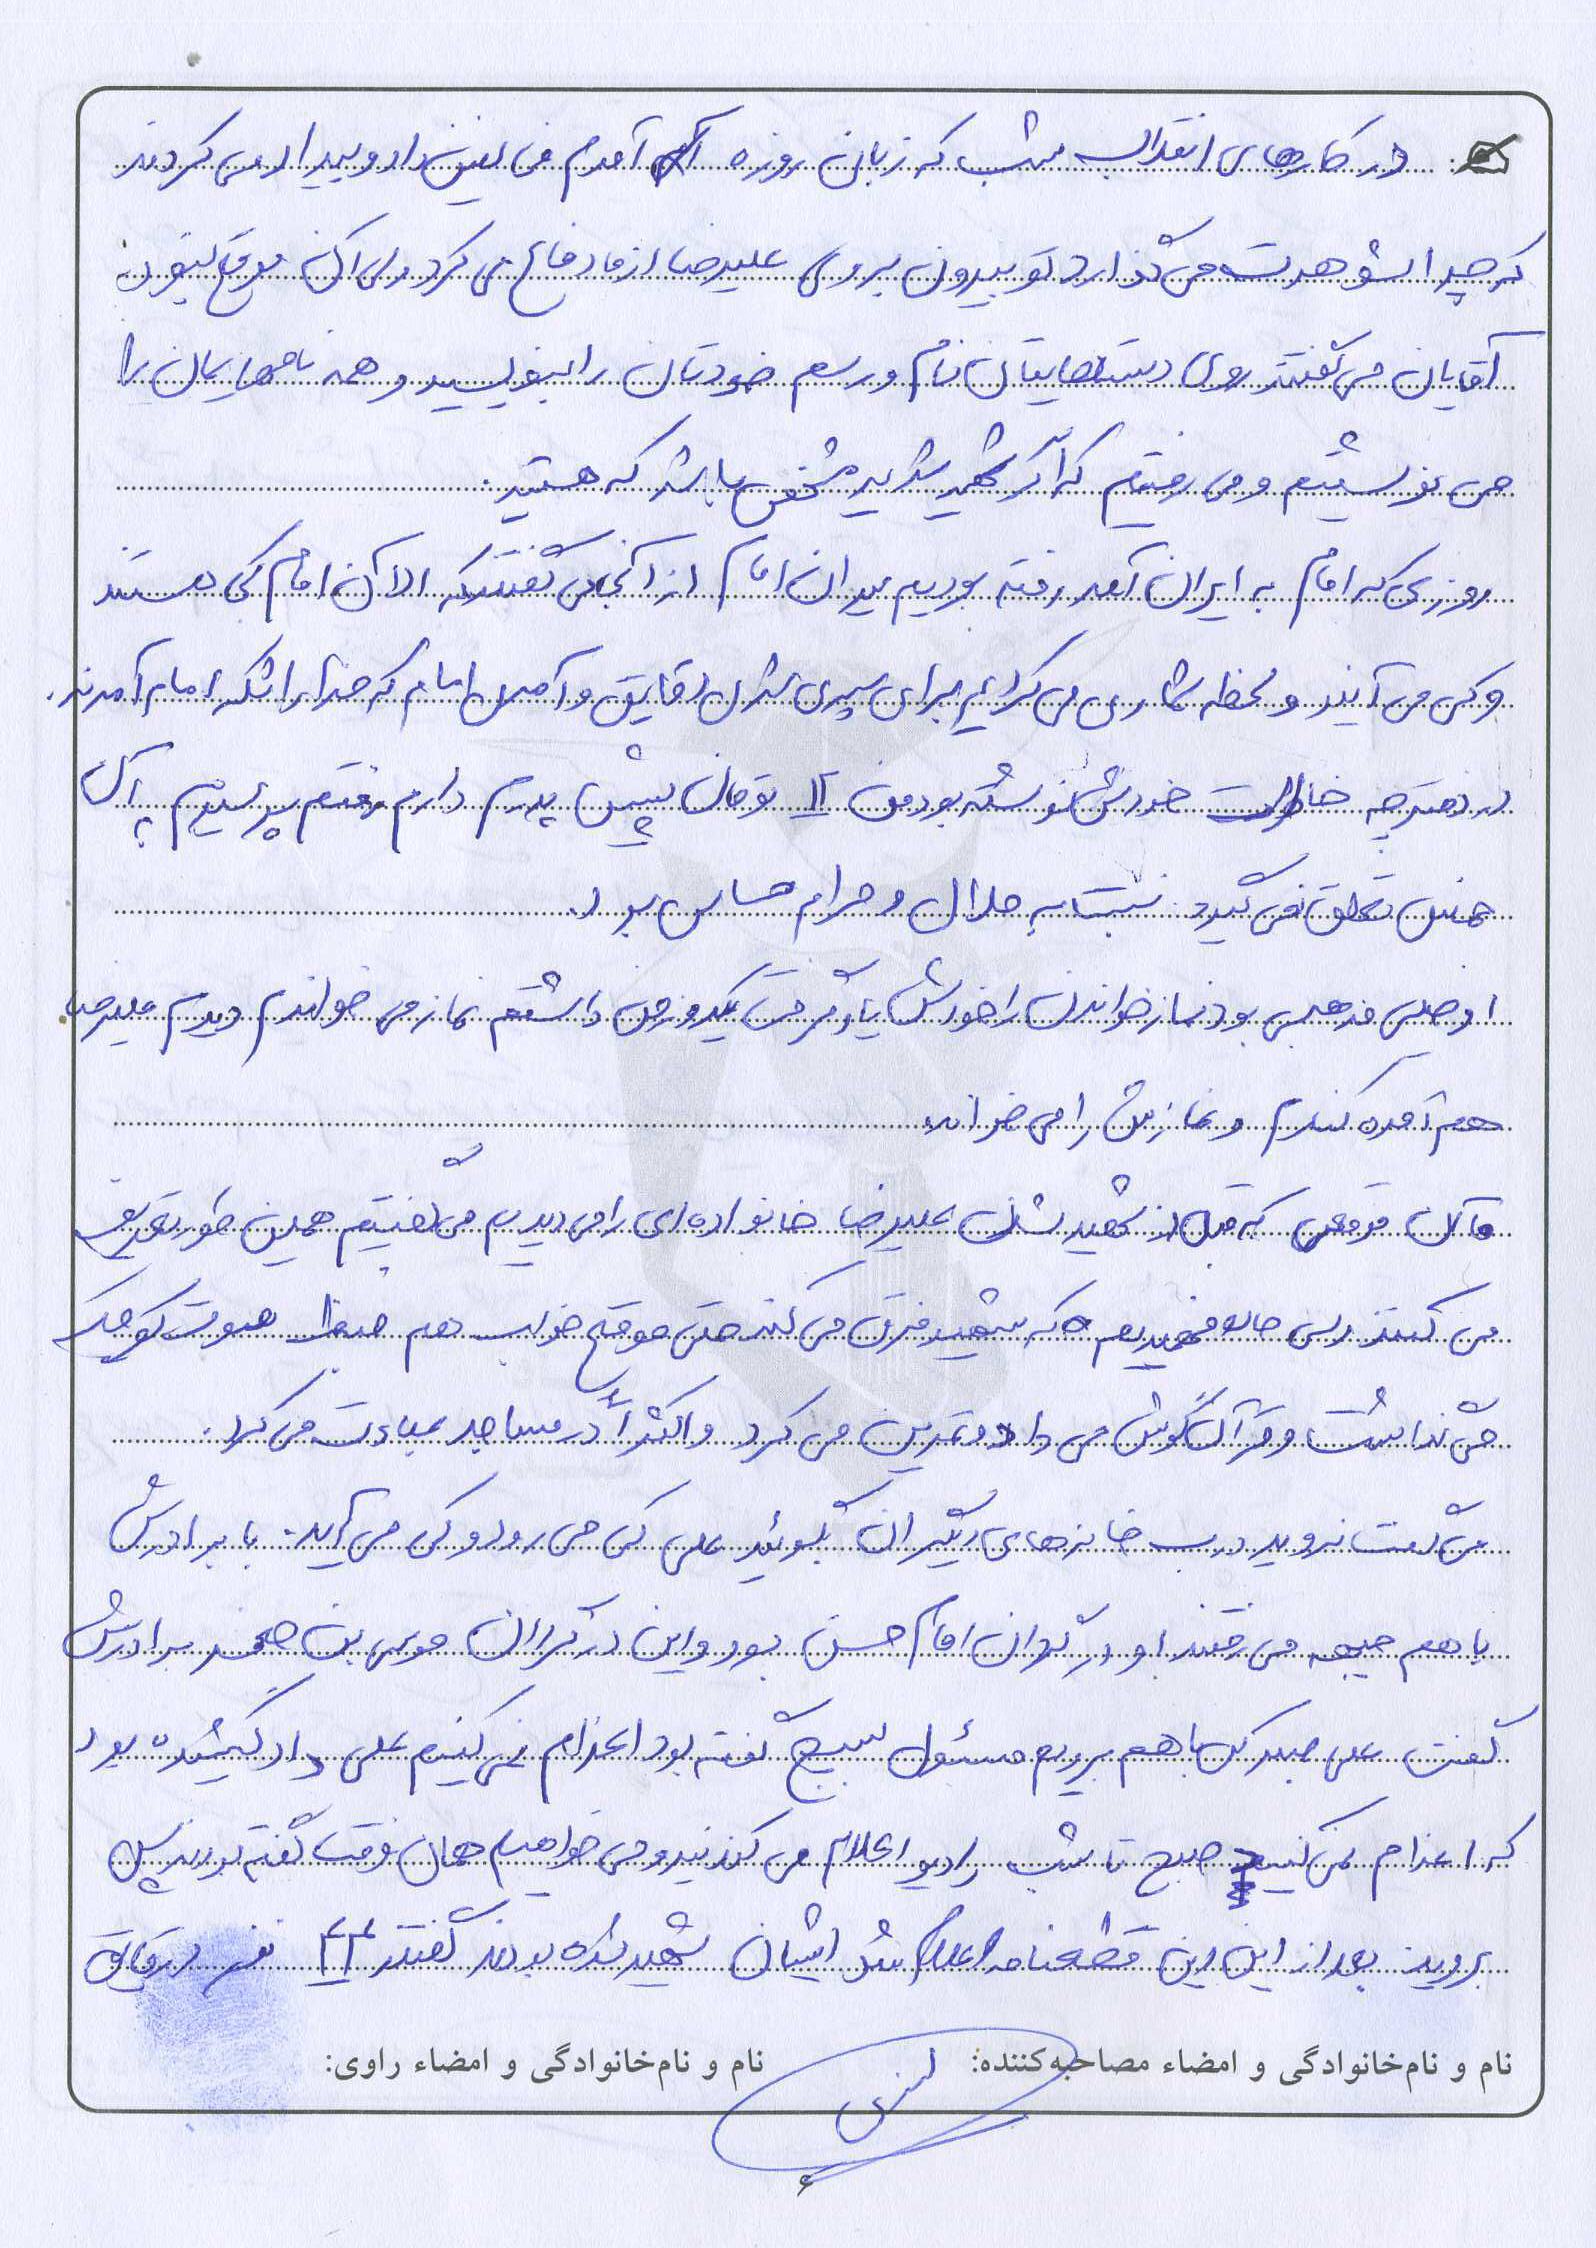 در کارهای انقلاب مشب که زبان روزه آمدم من را و بیدار می کردند
که چرا شوهرت می گذارد تو بیرون بروی علیرضا از ما دفاع می کرد ولی اکن موقع
آقایان می گفتند روی دستهایتان نام و رسم خودتان را بنویسید و همه نامهایمان را
می نوشتیم و می رفتیم که اگر شهید شدیم مشخص باشد که هستید.
روزی که امام به ایران آمد رفته بودیم میدان امام از آنجا می گفتند که الآن امام کی هستند
و کی می آیند و لحظه شماری می کردیم برای سپری شدن دقایق و آمدن امام که خدا را شکر امام آمدند.
در دفترچه خاطرات خودش نوشته بود من ۱۲ تومان پیش پدرم دارم رفتم پرسیدم آن
خمس تعلق نمی گیرد نسبت به حلال و حرام حساس بود.
او خیلی مذهبی بود نماز خواندن را خودش یاد گرفت یکروز من داشتم نماز می خواندم دیدم علیرضا
هم آمده کنارم و نمازش را می خواند
ما آن موقعی که قبل از شهید شدن علیرضا خانواده ای را می دیدیم می گفتیم همین طور تعریف
می کنند ولی حالا فهمیدیم که شهید فرق می کند حتی موقع خواب هم ضبط صوت کوچک
می گذاشت و قرآن گوش می داد و تمرین می کرد و اکثراً در مساجد عبادت می کرد.
می گفت نروید درب خانه های دیگران بگوئید علی کی می رود و کی می آید. با برادرش
با هم جبهه می رفتند او در گردان امام حسن بود و این در گردان موسی بن جعفر برادرش
گفت علی صبر کن با هم برویم مسئول بسیج گفته بود اعزام نمی کنیم علی داد کشیده بود
که اعزام نمی کنید صبح تا شب رادیو اعلام می کند نیرو می خواهیم همان وقت گفته بودند پس
بروید بعد از این قطعنامه اعلام شد ایشان شهید شده بودند گفتند ۴۴ نفر در قایق
نام و نام‌خانوادگی و امضاء مصاحبه‌کننده:
نام و نام‌خانوادگی و امضاء راوی:
۶